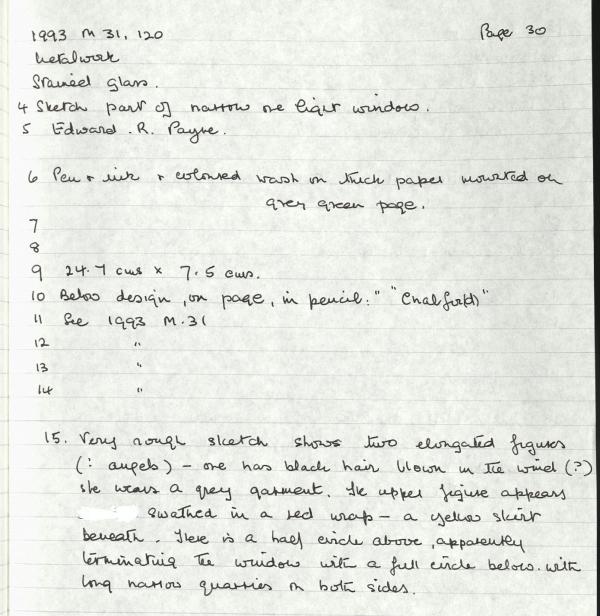 1993 M 31, 120 Page 30
Metalwork
Stained glass.
4 Sketch part of narrow one light window.
5 Edward .R. Payne.
6 Pen + ink + coloured wash on thick paper mounted on
grey green page.
7
8
9 24.7 cms × 7.5 cms.
10 Below design, on page, in pencil:" "Chalford"
11 See 1993 M.31
12 "
13 "
14 "
15. Very rough sketch shows two elongated figures
(: angels) – one has black hair blown in the wind (?)
She wears a grey garment. The upper figure appears
swathed in a red wrap – a yellow skirt
beneath. There is a half circle above, apparently
terminating the window with a full circle below. with
long narrow quarries on both sides.